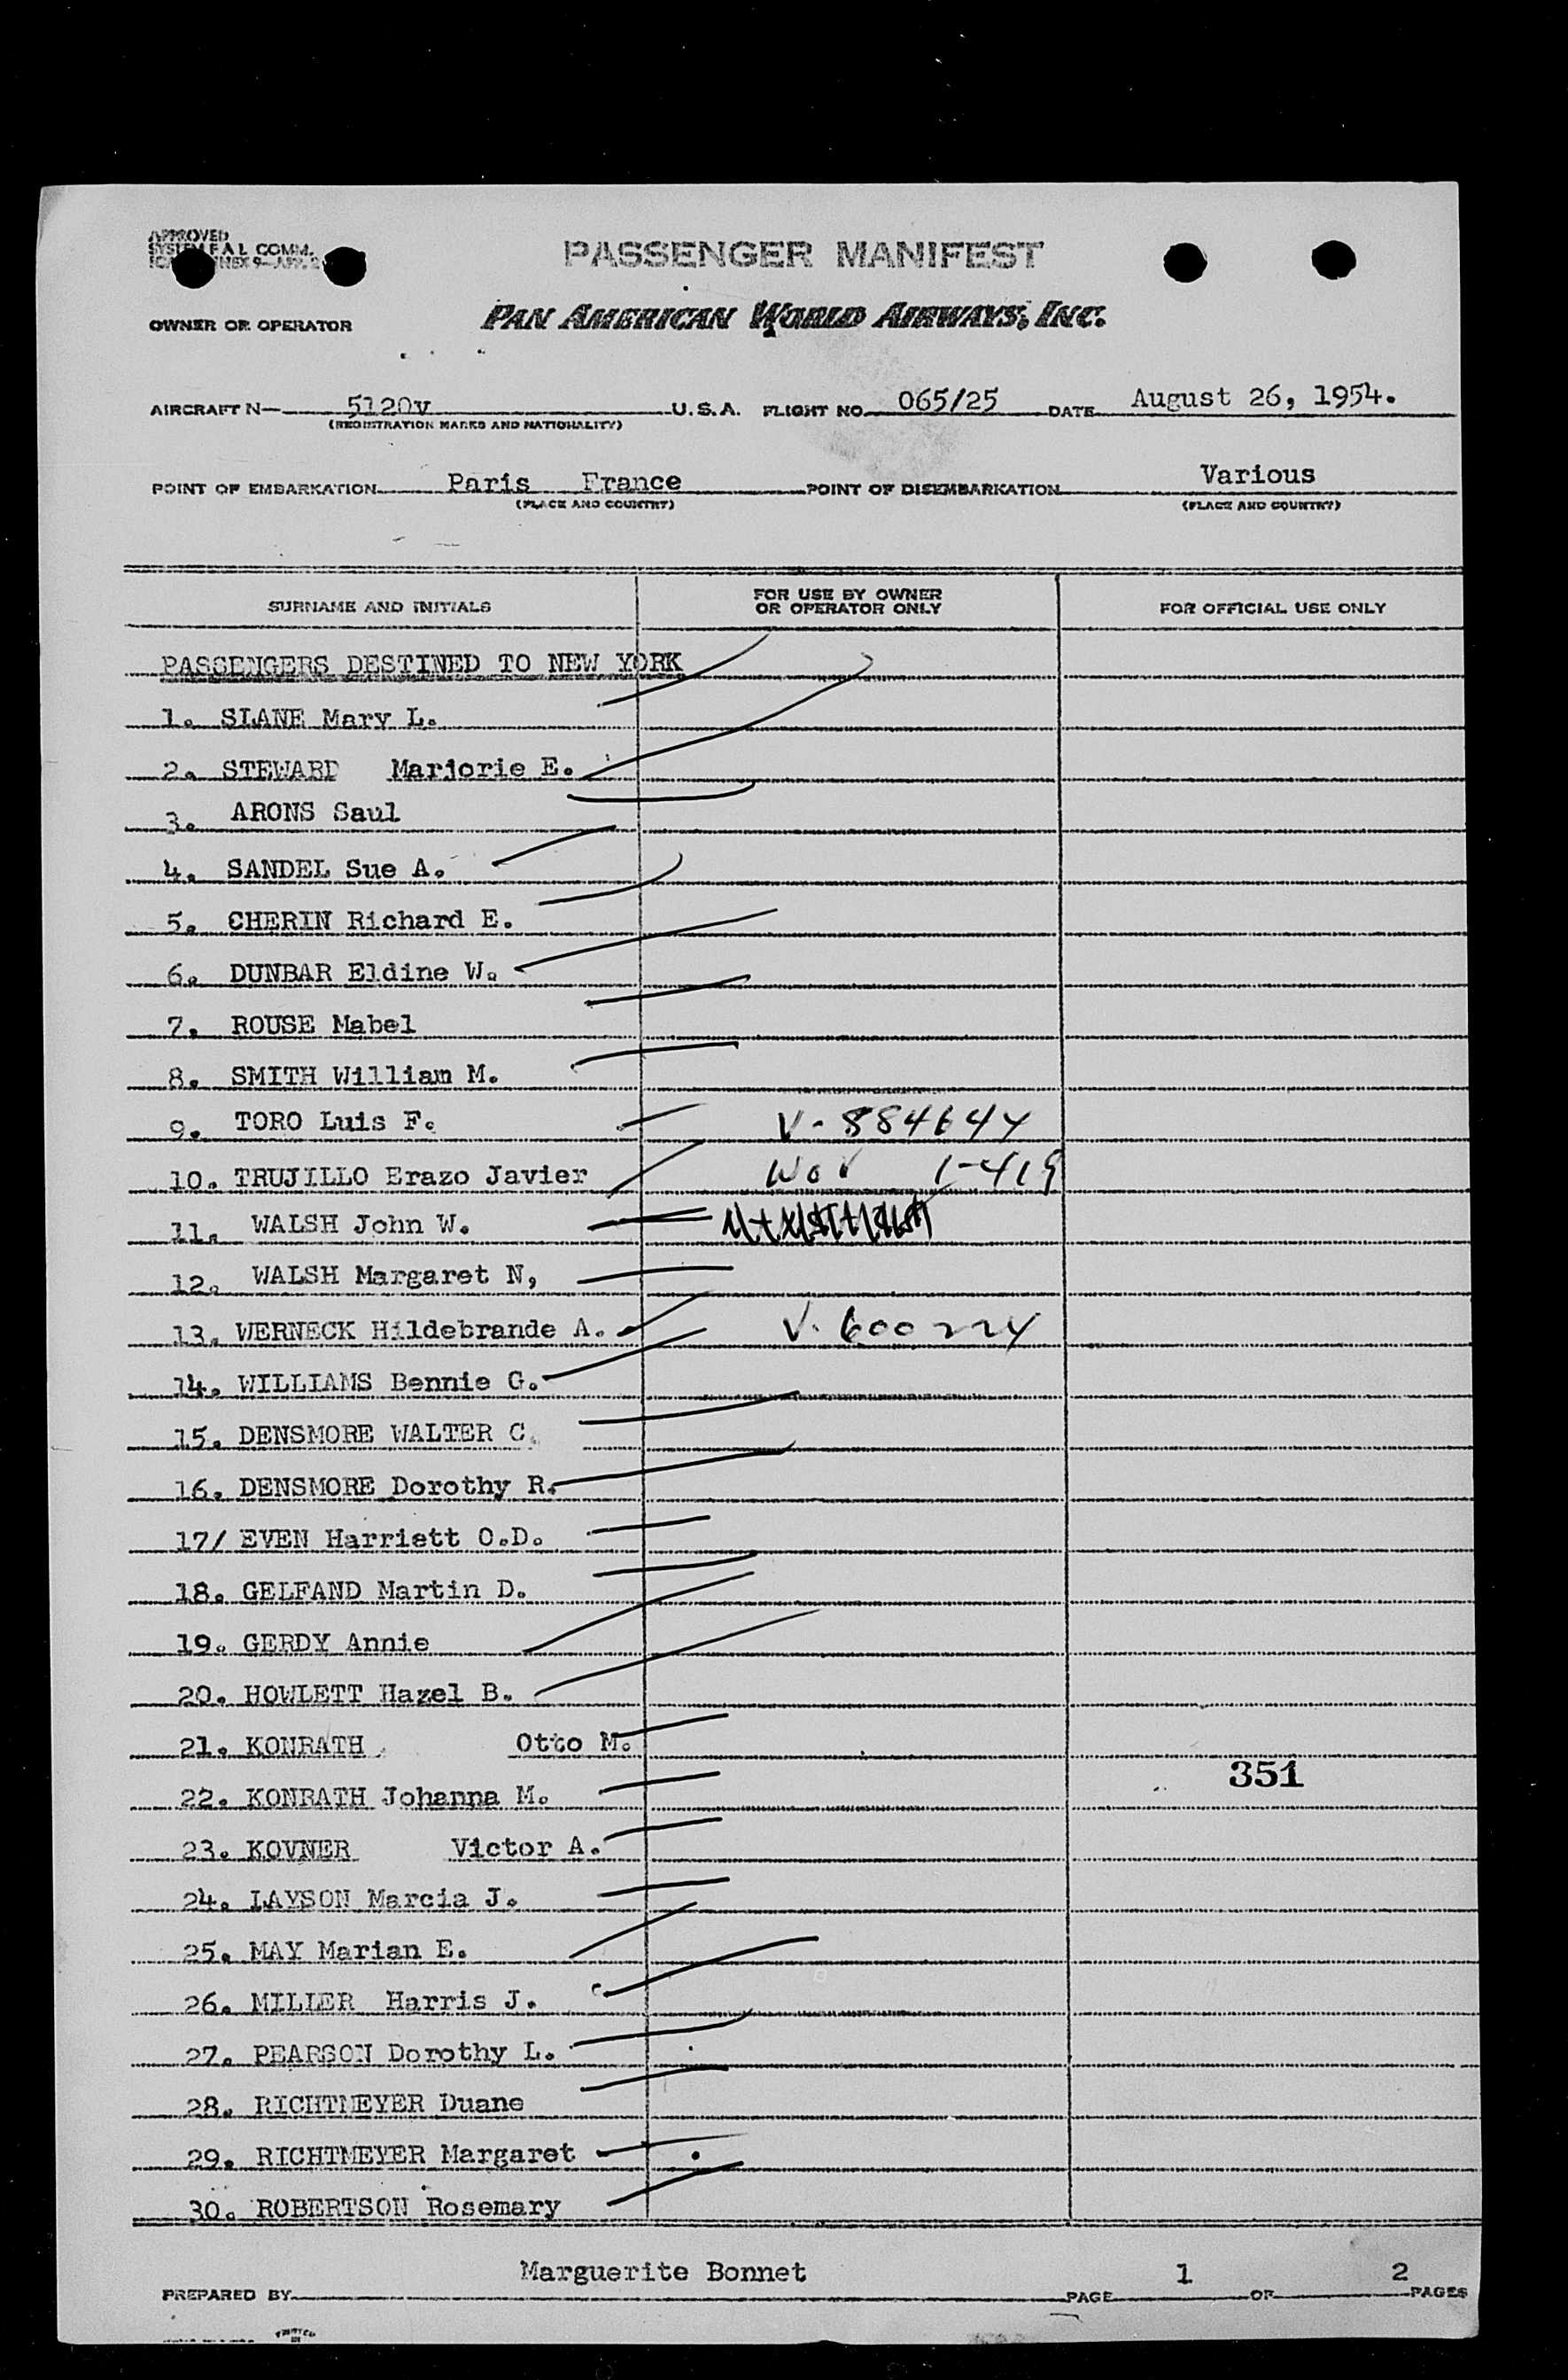 APPROVED
SYSTEM F A L COMM.
PASSENGER MANIFEST
OWNER OR OPERATOR PAN AMERICAN WORLD AIRWAYS, INC.
AIRCRAFT N— 5120v U.S.A. FLIGHT NO. 065/25 DATE August 26, 1954.
(REGISTRATION MARKS AND NATIONALITY)
POINT OF EMBARKATION Paris France POINT OF DISEMBARKATION Various
(PLACE AND COUNTRY) (PLACE AND COUNTRY)
SURNAME AND INITIALS FOR USE BY OWNER OR OPERATOR ONLY FOR OFFICIAL USE ONLY
PASSENGERS DESTINED TO NEW YORK
1. SLANE Mary L.
2. STEWARD Marjorie E.
3. ARONS Saul
4. SANDEL Sue A.
5. CHERIN Richard E.
6. DUNBAR Eldine W.
7. ROUSE Mabel
8. SMITH William M.
9. TORO Luis F. V-884644
10. TRUJILLO Erazo Javier 1-419
11. WALSH John W.
12. WALSH Margaret N,
13. WERNECK Hildebrande A. V.600224
14. WILLIAMS Bennie G.
15. DENSMORE WALTER C.
16. DENSMORE Dorothy R.
17/ EVEN Harriett O.D.
18. GELFAND Martin D.
19. GERDY Annie
20. HOWLETT Hazel B.
21. KONRATH Otto M.
351
22. KONRATH Johanna M.
23. KOVNER Victor A.
24. LAYSON Marcia J.
25. MAY Marian E.
26. MILLER Harris J.
27. PEARSON Dorothy L.
28. RICHTMEYER Duane
29. RICHTMEYER Margaret
30. ROBERTSON Rosemary
PREPARED BY Marguerite Bonnet PAGE 1 OF 2 PAGES